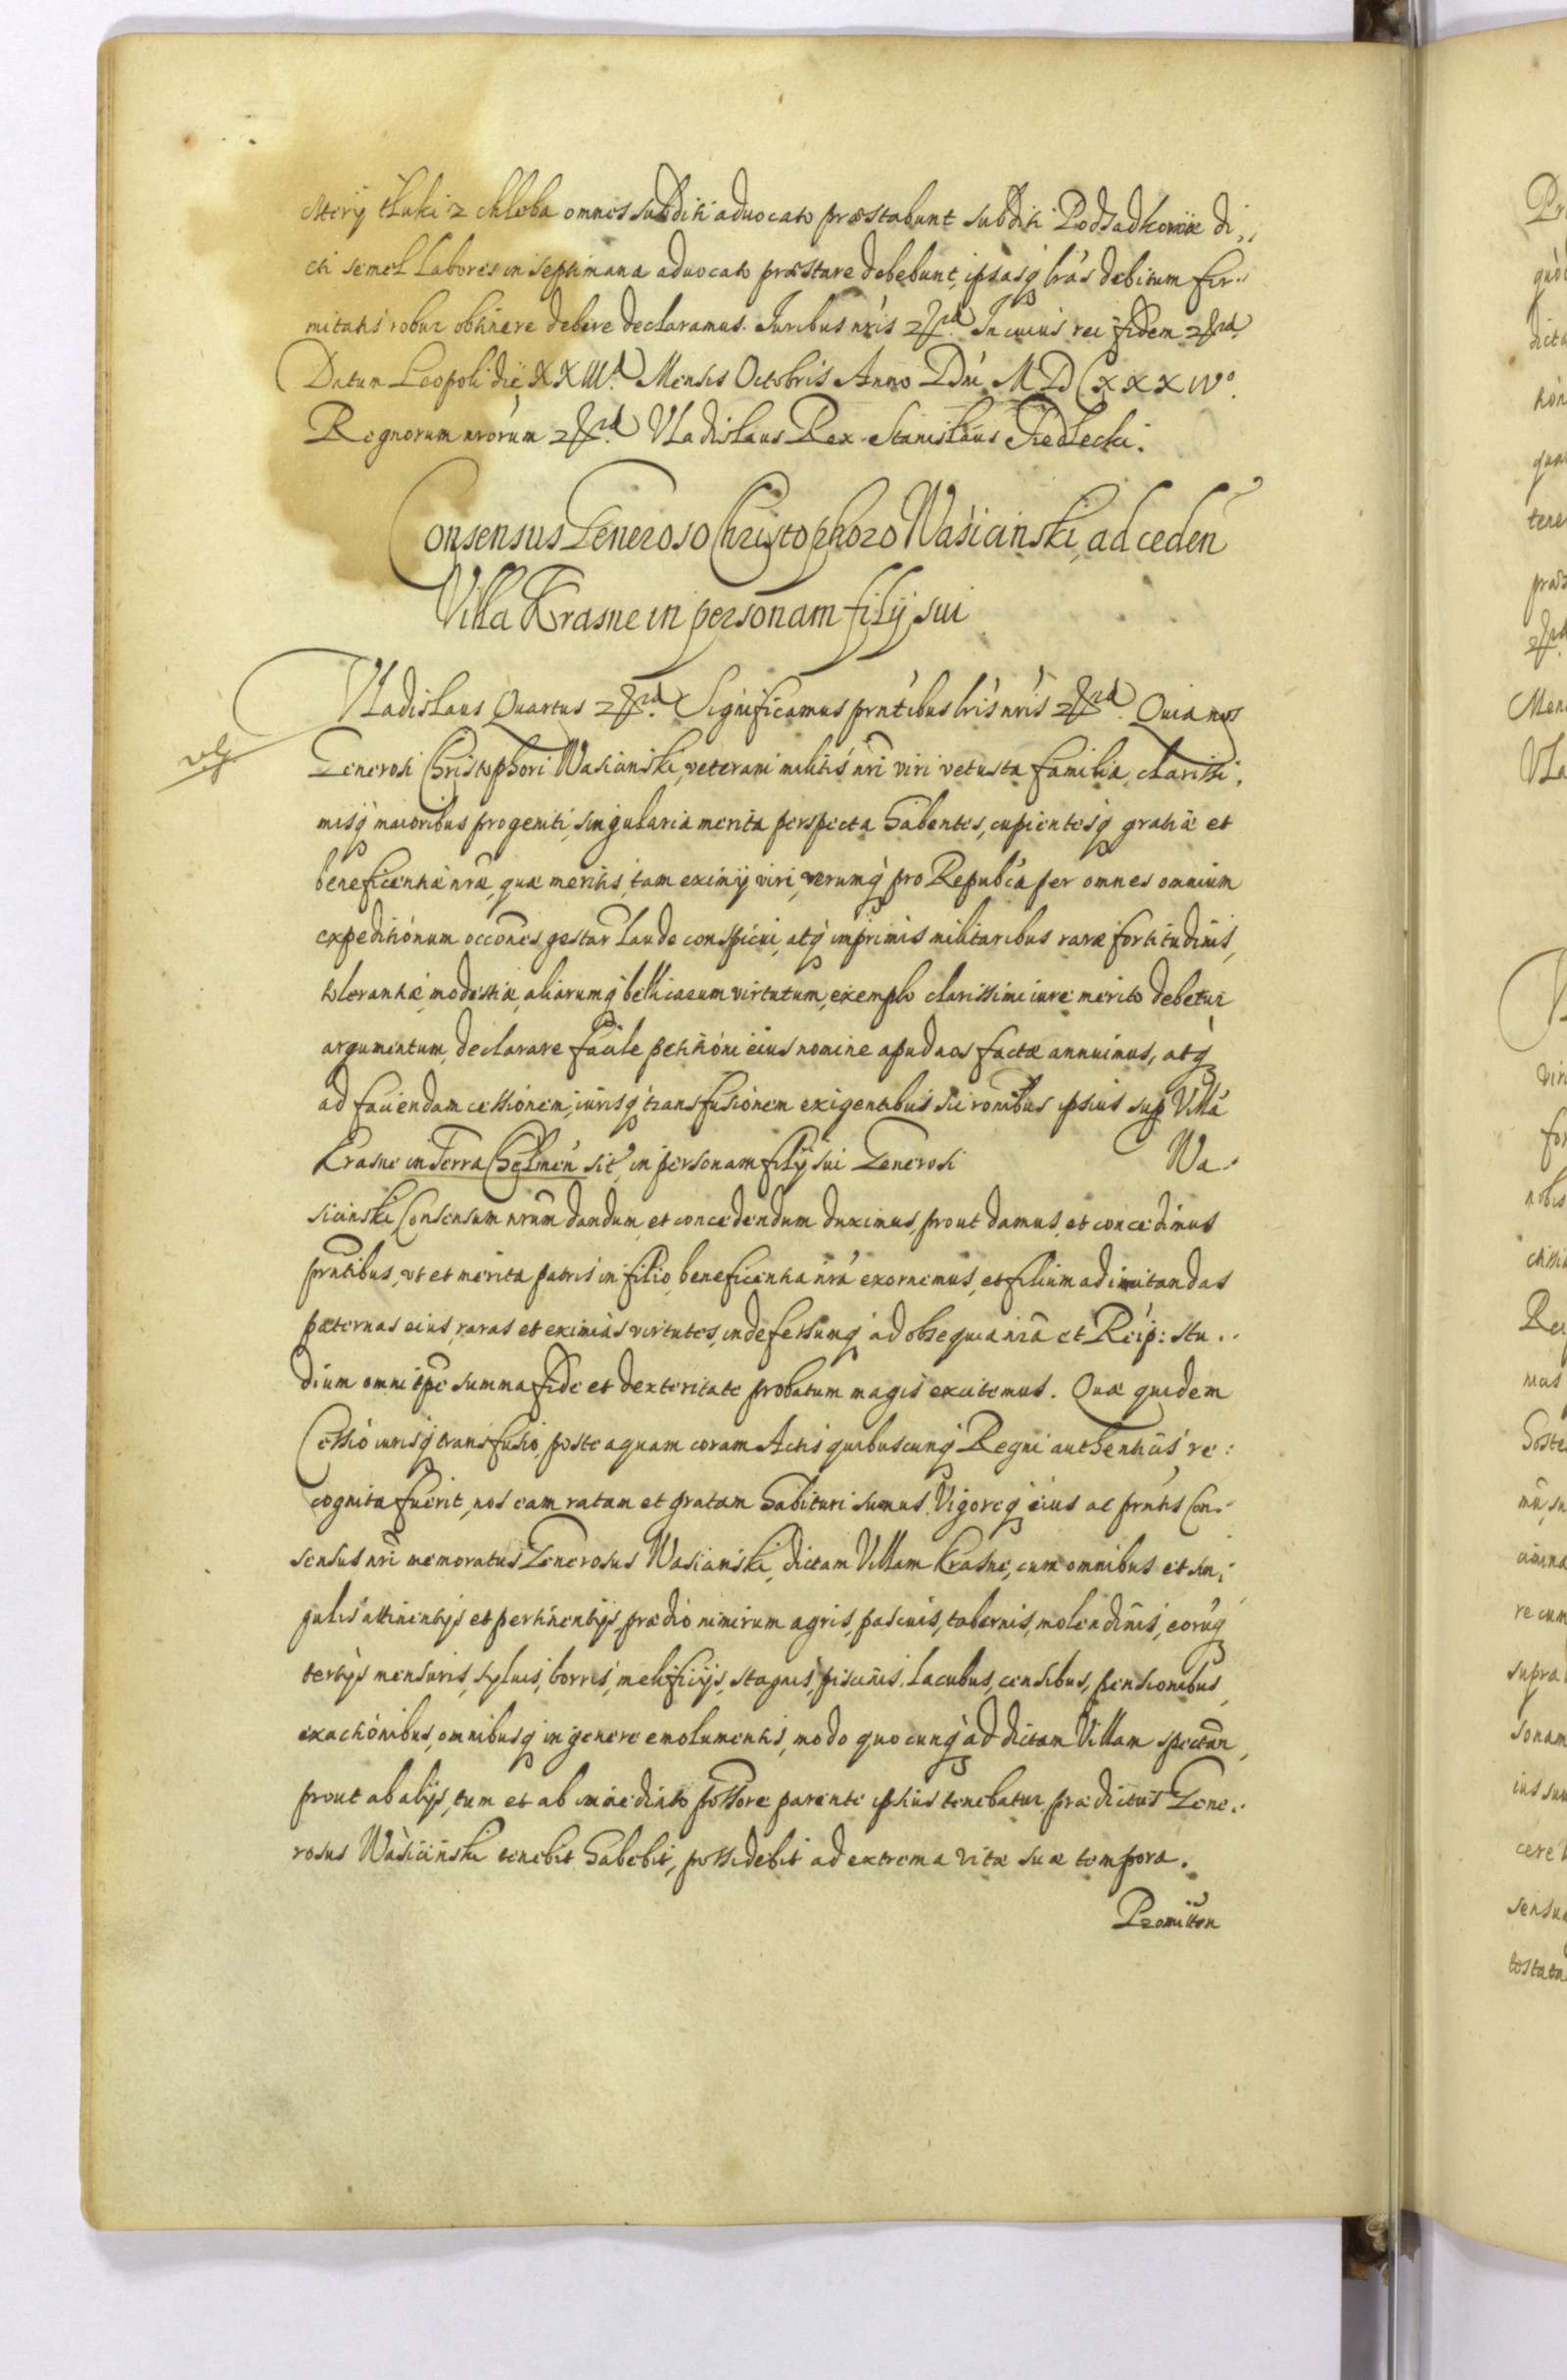 cztery tłuki z chleba omnes subditi aduocato præstabunt subditi Podsadkowie di,,
cti semel labores in septimana aduocato præstare debebunt, ipsasq́ lrás debitum fir..
mitatis robur obtinere debere declaramus. Iuribus nrís &rd. In cuius rei fidem &rd.
Datum Leopoli die XXIII.d Mensis Octobris Anno Dńi MDCXXXIVo.
Regnorum nrórum &rd. Vladislaus Rex. Stanislaus Siedlecki.
Consensus Generoso Christophoro Wasicinski, ad ceden
Villa Krasne in personam filij sui
Vladislaus Quartus &rd. Significamus prńtibus lrís nrís &rd. Quia nos
Generosi Christophori Wasicinski, veterani militis nrí viri vetusta familia, clarissi,
misq́ maioribus progeniti, singularia merita perspecta habentes, cupientesq́ gratiæ et
beneficentiæ nræ, quæ meritis tam eximij viri, rerumq́ pro Repubĺca per omnes omnium
expeditiónum occónes gestar̃ laude conspicui, atq́ inprimis militaribus raræ fortitudinis,
tolerantiæ, modestiæ, aliarumq́ bellicarum virtutum, exemplo clarissimi iure merito debetur
argumentum, declarare facile petitióni eius nomine apud nos factæ annuimus, atq́
ad faciendam cessiónem, iurisq́ transfusiónem exigentibus sic rońibus ipsius sup Villa
Krasne in Terra Chełmeń sit̃, in personam filij sui Generosi Wa..
sicinski Consensum nrúm dandum et concedendum duximus, prout damus et concedimus
prńtibus, vt et merita patris in filio, beneficentia nrá exornemus, et filium ad imitandas
paternas eius, raras et eximias virtutes, indefessumq́ ad obsequia nrá et Reip: stu..
dium omni tṕe summa fide et dexteritate probatum magis excitemus. Quæ quidem
Cessio iurisq́ transfusio, posteaquam coram Actis quibuscunq́ Regni authenticis re:
cognita fuerit, nos eam ratam et gratam habituri sumus. Vigoreq́ eius ac prńtis Con..
sensus nrí memoratus Generosus Wasicinski, dictam Villam Krasne, cum omnibus et sin,
gulis attinentijs et pertinentijs, prædio nimirum agris, pascuis, tabernis, molendinis, eorúq́
tertijs mensuris, syluis, borris, melificijs, stagnis, piscinis, lacubus, censibus, pensionibus,
exactiónibus, omnibusq́ in genere emolumentis, modo quocunq́ ad dictam Villam spectań,
prout ab alijs, tum et ab im̃ediato possõre parente ipsius tenebatur, prædictus Gene..
rosus Wasiciński tenebit habebit, possidebit ad extrema vitæ suæ tempora.
Promitten